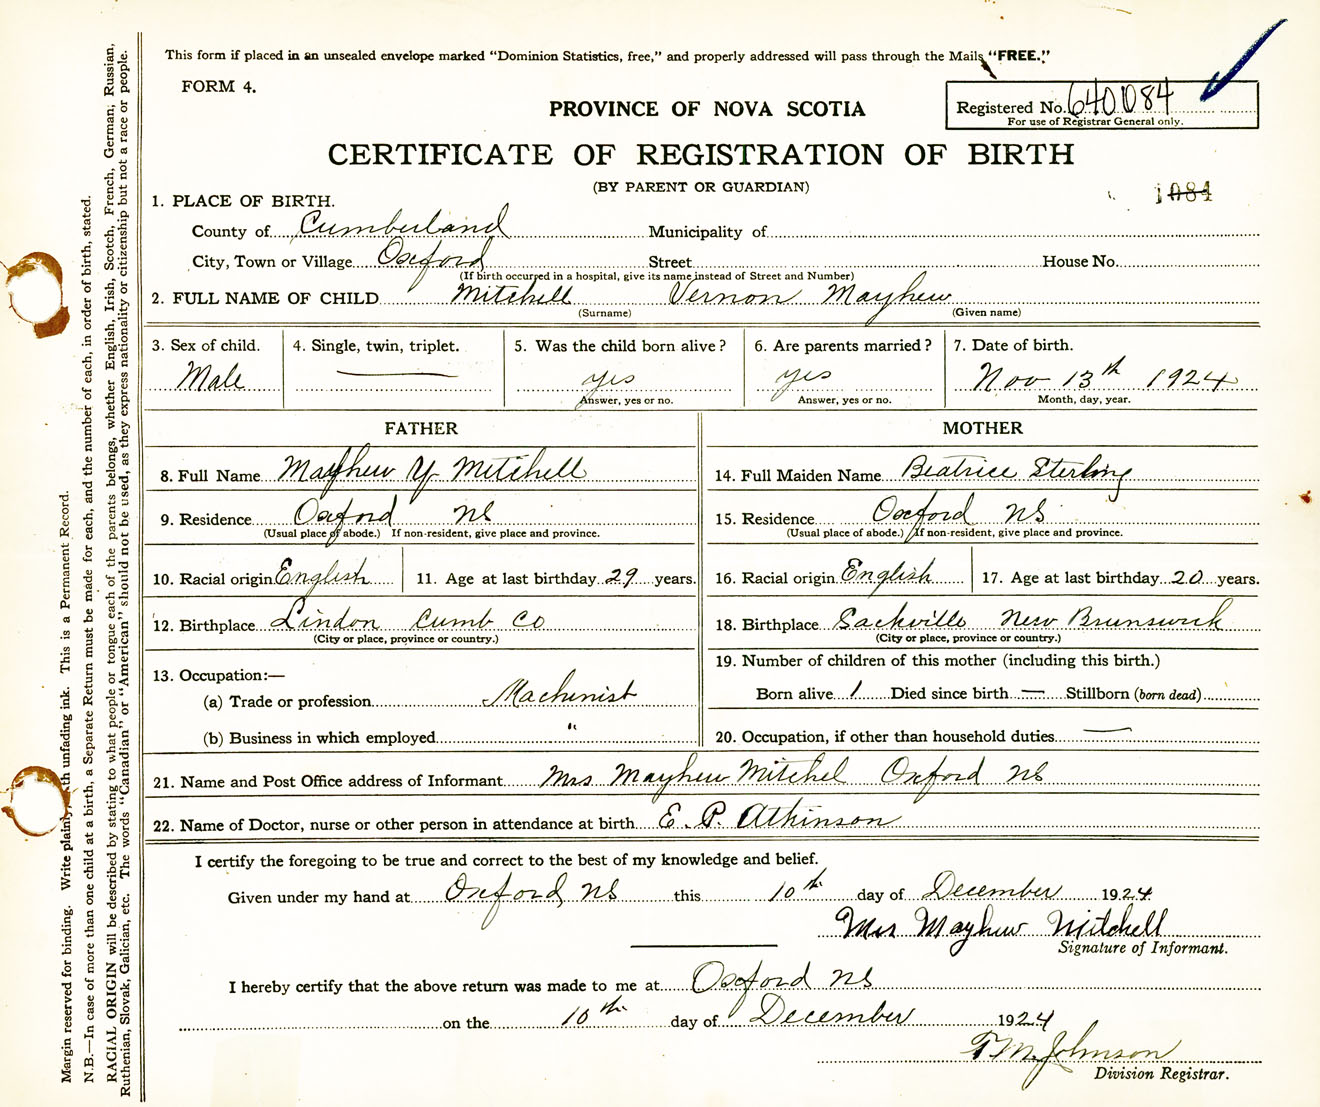 This form if placed in an unsealed envelope marked "Dominion Statistics, free," and properly addressed will pass through the Mails "FREE."
FORM 4.
PROVINCE OF NOVA SCOTIA
Registered No. 640084
For use of Registrar General only.
CERTIFICATE OF REGISTRATION OF BIRTH
(BY PARENT OR GUARDIAN)
1084
1. PLACE OF BIRTH.
County of Cumberland Municipality of
City, Town or Village Oxford Street House No.
(If birth occurred in a hospital, give its name instead of Street and Number)
2. FULL NAME OF CHILD Mitchell Vernon Mayhew
(Surname) (Given name)
3. Sex of child. 4. Single, twin, triplet. 5. Was the child born alive? 6. Are parents married? 7. Date of birth.
Male — yes yes Nov 13th 1924
Answer, yes or no. Answer, yes or no. Month, day, year.
FATHER MOTHER
8. Full Name Mayhew Y Mitchell 14. Full Maiden Name Beatrice Sterling
9. Residence Oxford NS 15. Residence Oxford NS
(Usual place of abode.) If non-resident, give place and province. (Usual place of abode.) If non-resident, give place and province.
10. Racial origin English 11. Age at last birthday 29 years. 16. Racial origin English 17. Age at last birthday 20 years.
12. Birthplace Lindon Cumb Co 18. Birthplace Sackville New Brunswick
(City or place, province or country.) (City or place, province or country.)
13. Occupation:— 19. Number of children of this mother (including this birth.)
(a) Trade or profession Machinist Born alive 1 Died since birth — Stillborn (born dead)
(b) Business in which employed " 20. Occupation, if other than household duties —
21. Name and Post Office address of Informant Mrs Mayhew Mitchel Oxford NS
22. Name of Doctor, nurse or other person in attendance at birth E. P. Atkinson
I certify the foregoing to be true and correct to the best of my knowledge and belief.
Given under my hand at Oxford NS this 10th day of December 1924
Mrs Mayhew Mitchell
Signature of Informant.
I hereby certify that the above return was made to me at Oxford NS
on the 10th day of December 1924
T M Johnson
Division Registrar.
Margin reserved for binding. Write plainly, with unfading ink. This is a Permanent Record.
N.B.—In case of more than one child at a birth, a Separate Return must be made for each, and the number of each, in order of birth, stated.
RACIAL ORIGIN will be described by stating to what people or tongue each of the parents belongs, whether English, Irish, Scotch, French, German, Russian,
Ruthenian, Slovak, Galician, etc. The words "Canadian" or "American" should not be used, as they express nationality or citizenship but not a race or people.